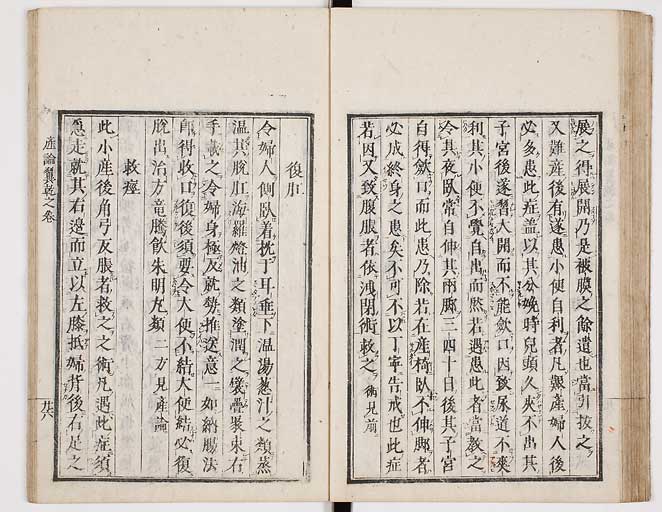 展之得展開乃是被膜之餘遺也當引抜之
又難産後有遂患小便自利者凡艱産婦人後
必多患此症盖以其分娩時兒頭久夾不出其
子宮後遂大開而不能斂口因致尿道不爽
利其小便不覺自出而然若遇患此者當教之
令其夜臥常自伸其兩脚三四十日後其子宮
自得斂口而此患乃除若在産椅臥不伸脚者
必成終身之患矣不可不以丁寧告戒也此症
若因又致脹者依鴻閉術救之 術見前
後肛
令婦人側臥着枕丁耳垂下温湯葱汁之類蒸
温其脱肛海羅燈油之類塗潤之襞疊裝束右
手載之令婦身極反就勢推送意一如納腸法
即得收口復後須要令大便不結大便結必復
脱出治方竜騰飲朱明丸類 二方見産論
救痙
此小産後角弓反張者救之之術凡遇此症須
急走就其右邊而立以左膝抵婦背後右足之
産論翼乾之卷
廿六